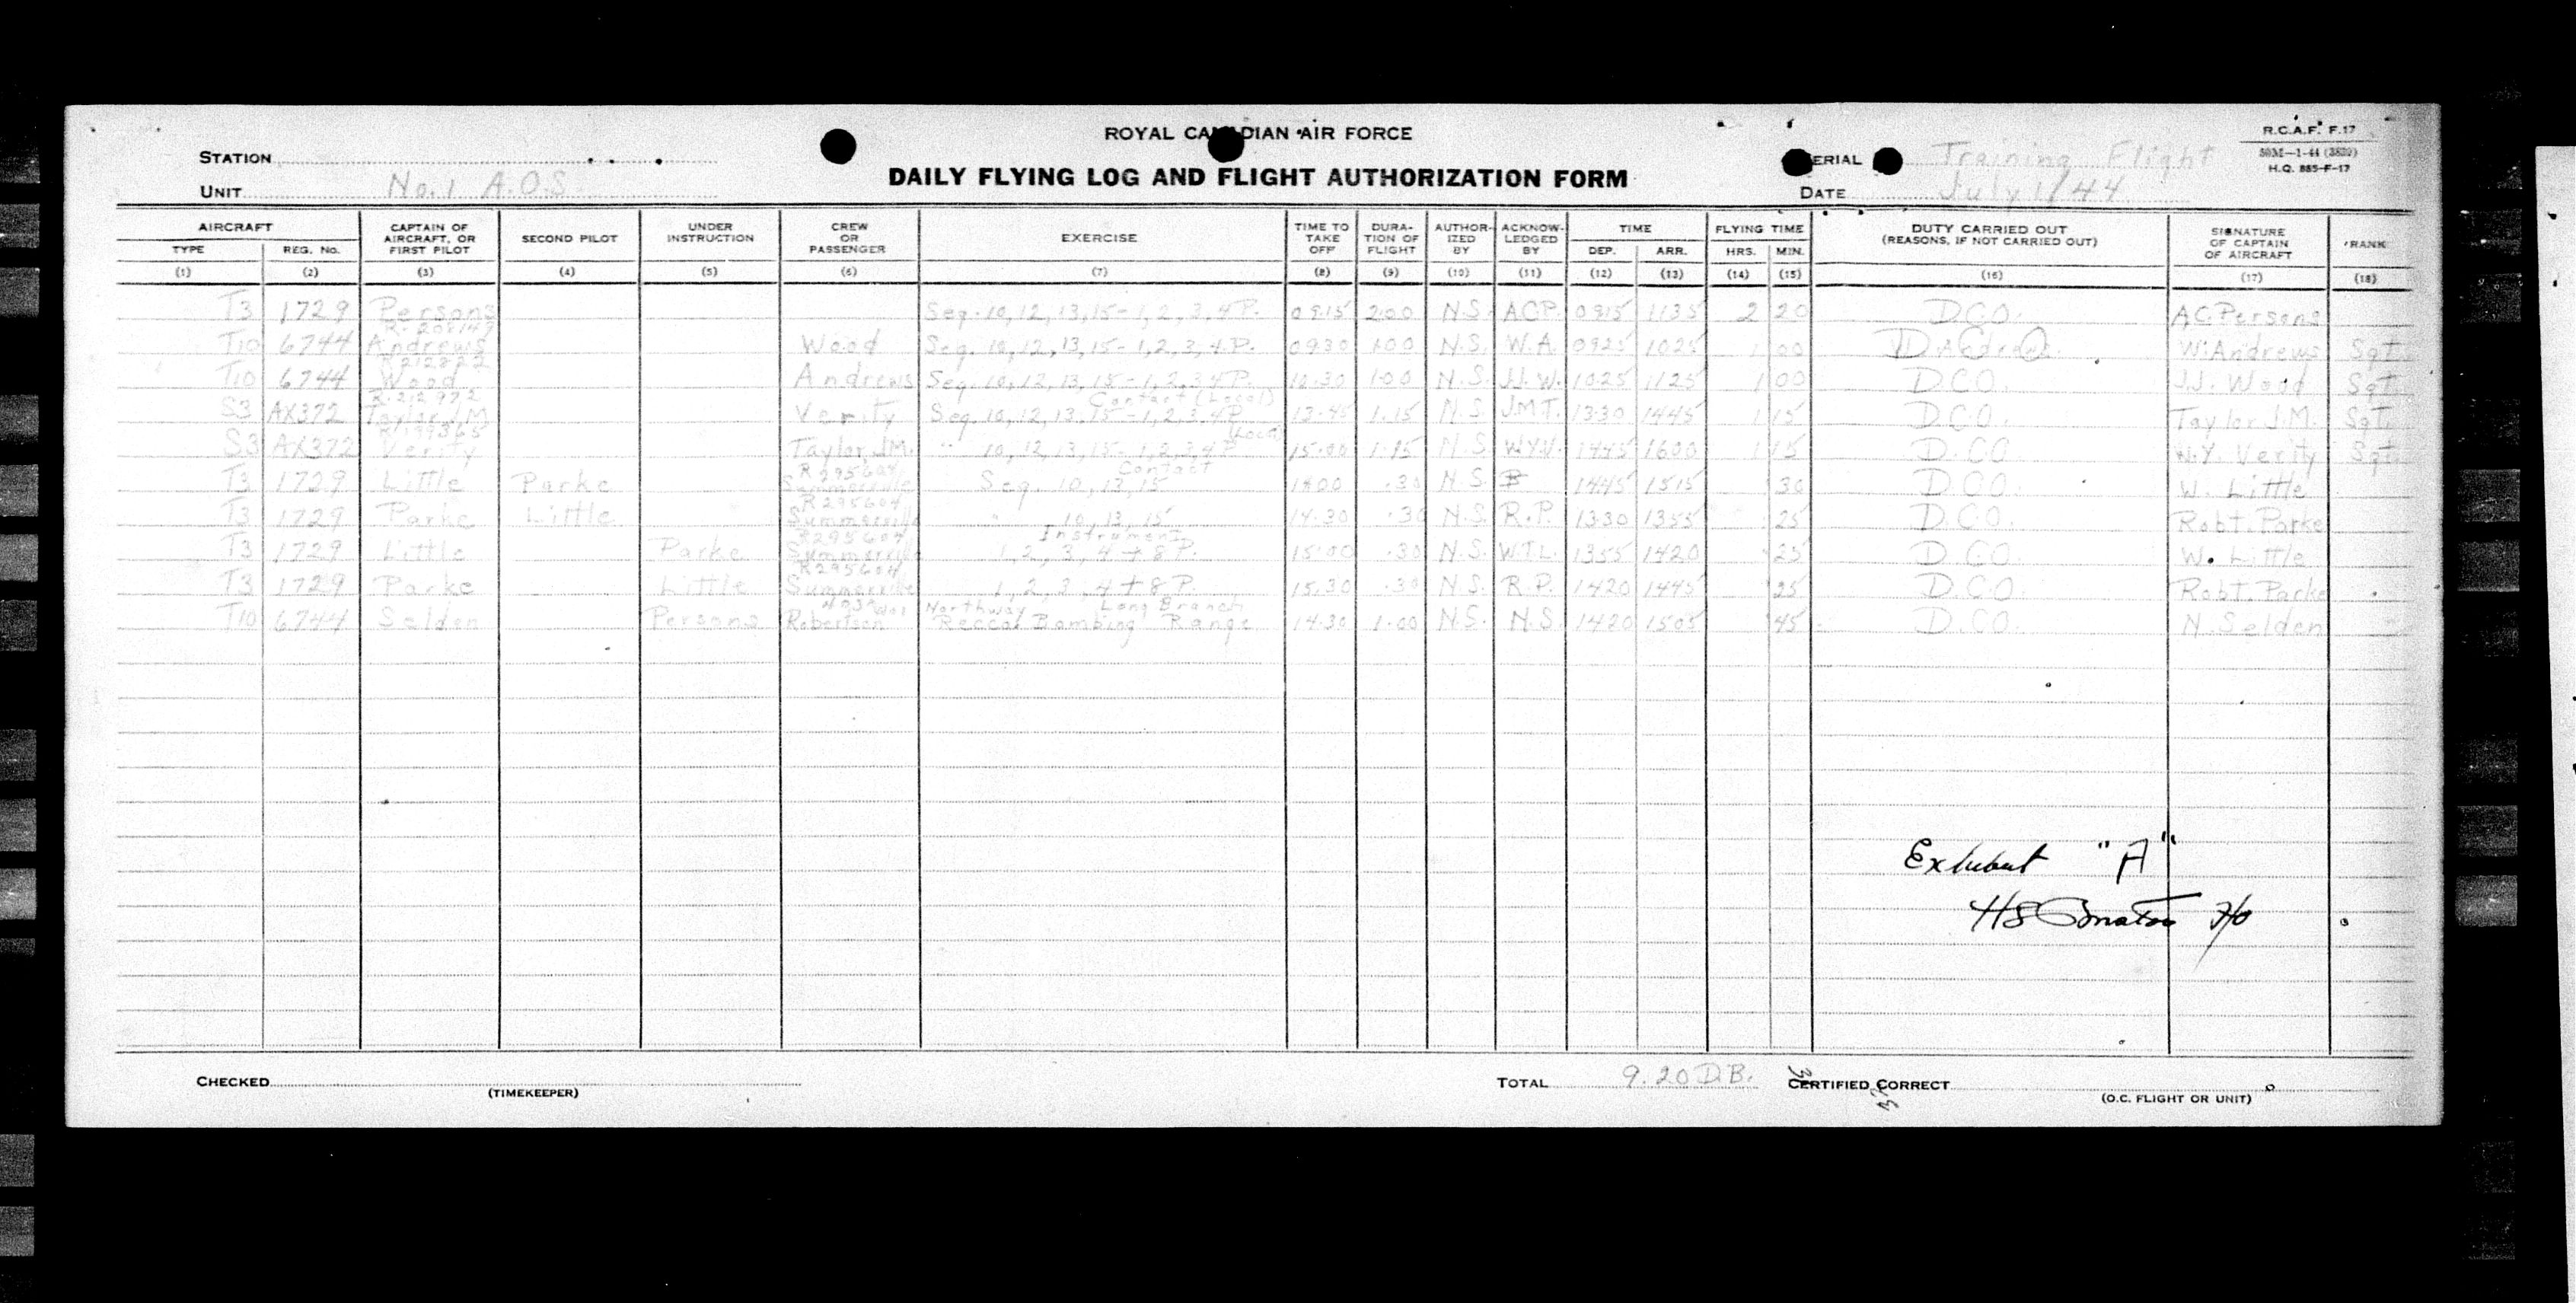 ROYAL CANADIAN AIR FORCE
DAILY FLYING LOG AND FLIGHT AUTHORIZATION FORM
R.C.A.F. F.17
50M—1-44 (3820)
H.Q. 885-F-17
STATION
UNIT No. 1 A.O.S.
SERIAL Training Flight
DATE July 1/44
AIRCRAFT TYPE (1) REG. No. (2) CAPTAIN OF AIRCRAFT, OR FIRST PILOT (3) SECOND PILOT (4) UNDER INSTRUCTION (5) CREW OR PASSENGER (6) EXERCISE (7) TIME TO TAKE OFF (8) DURATION OF FLIGHT (9) AUTHORIZED BY (10) ACKNOWLEDGED BY (11) TIME DEP. (12) ARR. (13) FLYING TIME HRS. (14) MIN. (15) DUTY CARRIED OUT (REASONS, IF NOT CARRIED OUT) (16) SIGNATURE OF CAPTAIN OF AIRCRAFT (17) RANK (18)
T3 1729 Persons Seq. 10, 12, 13, 15 - 1, 2, 3, 4 P. 09.15 2.00 N.S. A.C.P. 0915 1135 2 20 D.C.O. A.C. Persons
T10 6744 Andrews Wood Seq. 10, 12, 13, 15 - 1, 2, 3, 4. P. 0930 1.00 N.S. W.A. 0925 1025 1 00 W. Andrews Sgt.
T10 6744 Wood Andrews Seq. 10, 12, 13, 15 - 1, 2, 3, 4 P. 10.30 1.00 N.S. J.J.W. 1025 1125 1 00 D.C.O. J.J. Wood Sgt.
R.212972 Contact (Local)
S3 AX372 Taylor J.M. Verity Seq. 10, 12, 13, 15 - 1, 2, 3, 4 P. 13.45 1.15 N.S. J.M.T. 1330 1445 1 15 D.C.O. Taylor J.M. Sgt.
(Local)
S3 AX372 Verity Taylor J.M. " 10, 12, 13, 15 - 1, 2, 3, 4 P 15.00 1.15 N.S. W.Y.V. 1445 1600 1 15 D.C.O. W.Y. Verity Sgt.
R295604 Contact
T3 1729 Little Parke Summerville Seq. 10, 13, 15 .30 N.S. 1445 1515 30 D.C.O. W. Little
R295604
T3 1729 Parke Little Summerville " 10, 13, 15 14.30 .30 N.S. R.P. 1330 1355 25 D.C.O. Robt. Parke
R295604 Instrument
T3 1729 Little Parke Summerville 1, 2, 3, 4 + 8 P. 15.00 .30 N.S. W.T.L. 1355 1420 25 D.C.O. W. Little
R295604
T3 1729 Parke Little Summerville 1, 2, 3, 4 + 8 P. 15.30 .30 N.S. R.P. 1420 1445 25 D.C.O. Robt. Parke
Northway Long Branch
T10 6744 Selden Persons Robertson Reccal Bombing Range 14.30 1.00 N.S. N.S. 1420 1505 45 D.C.O. N. Selden
Exhibit "A"
F/O
CHECKED (TIMEKEEPER)
TOTAL 9.20 D.B.
CERTIFIED CORRECT (O.C. FLIGHT OR UNIT)